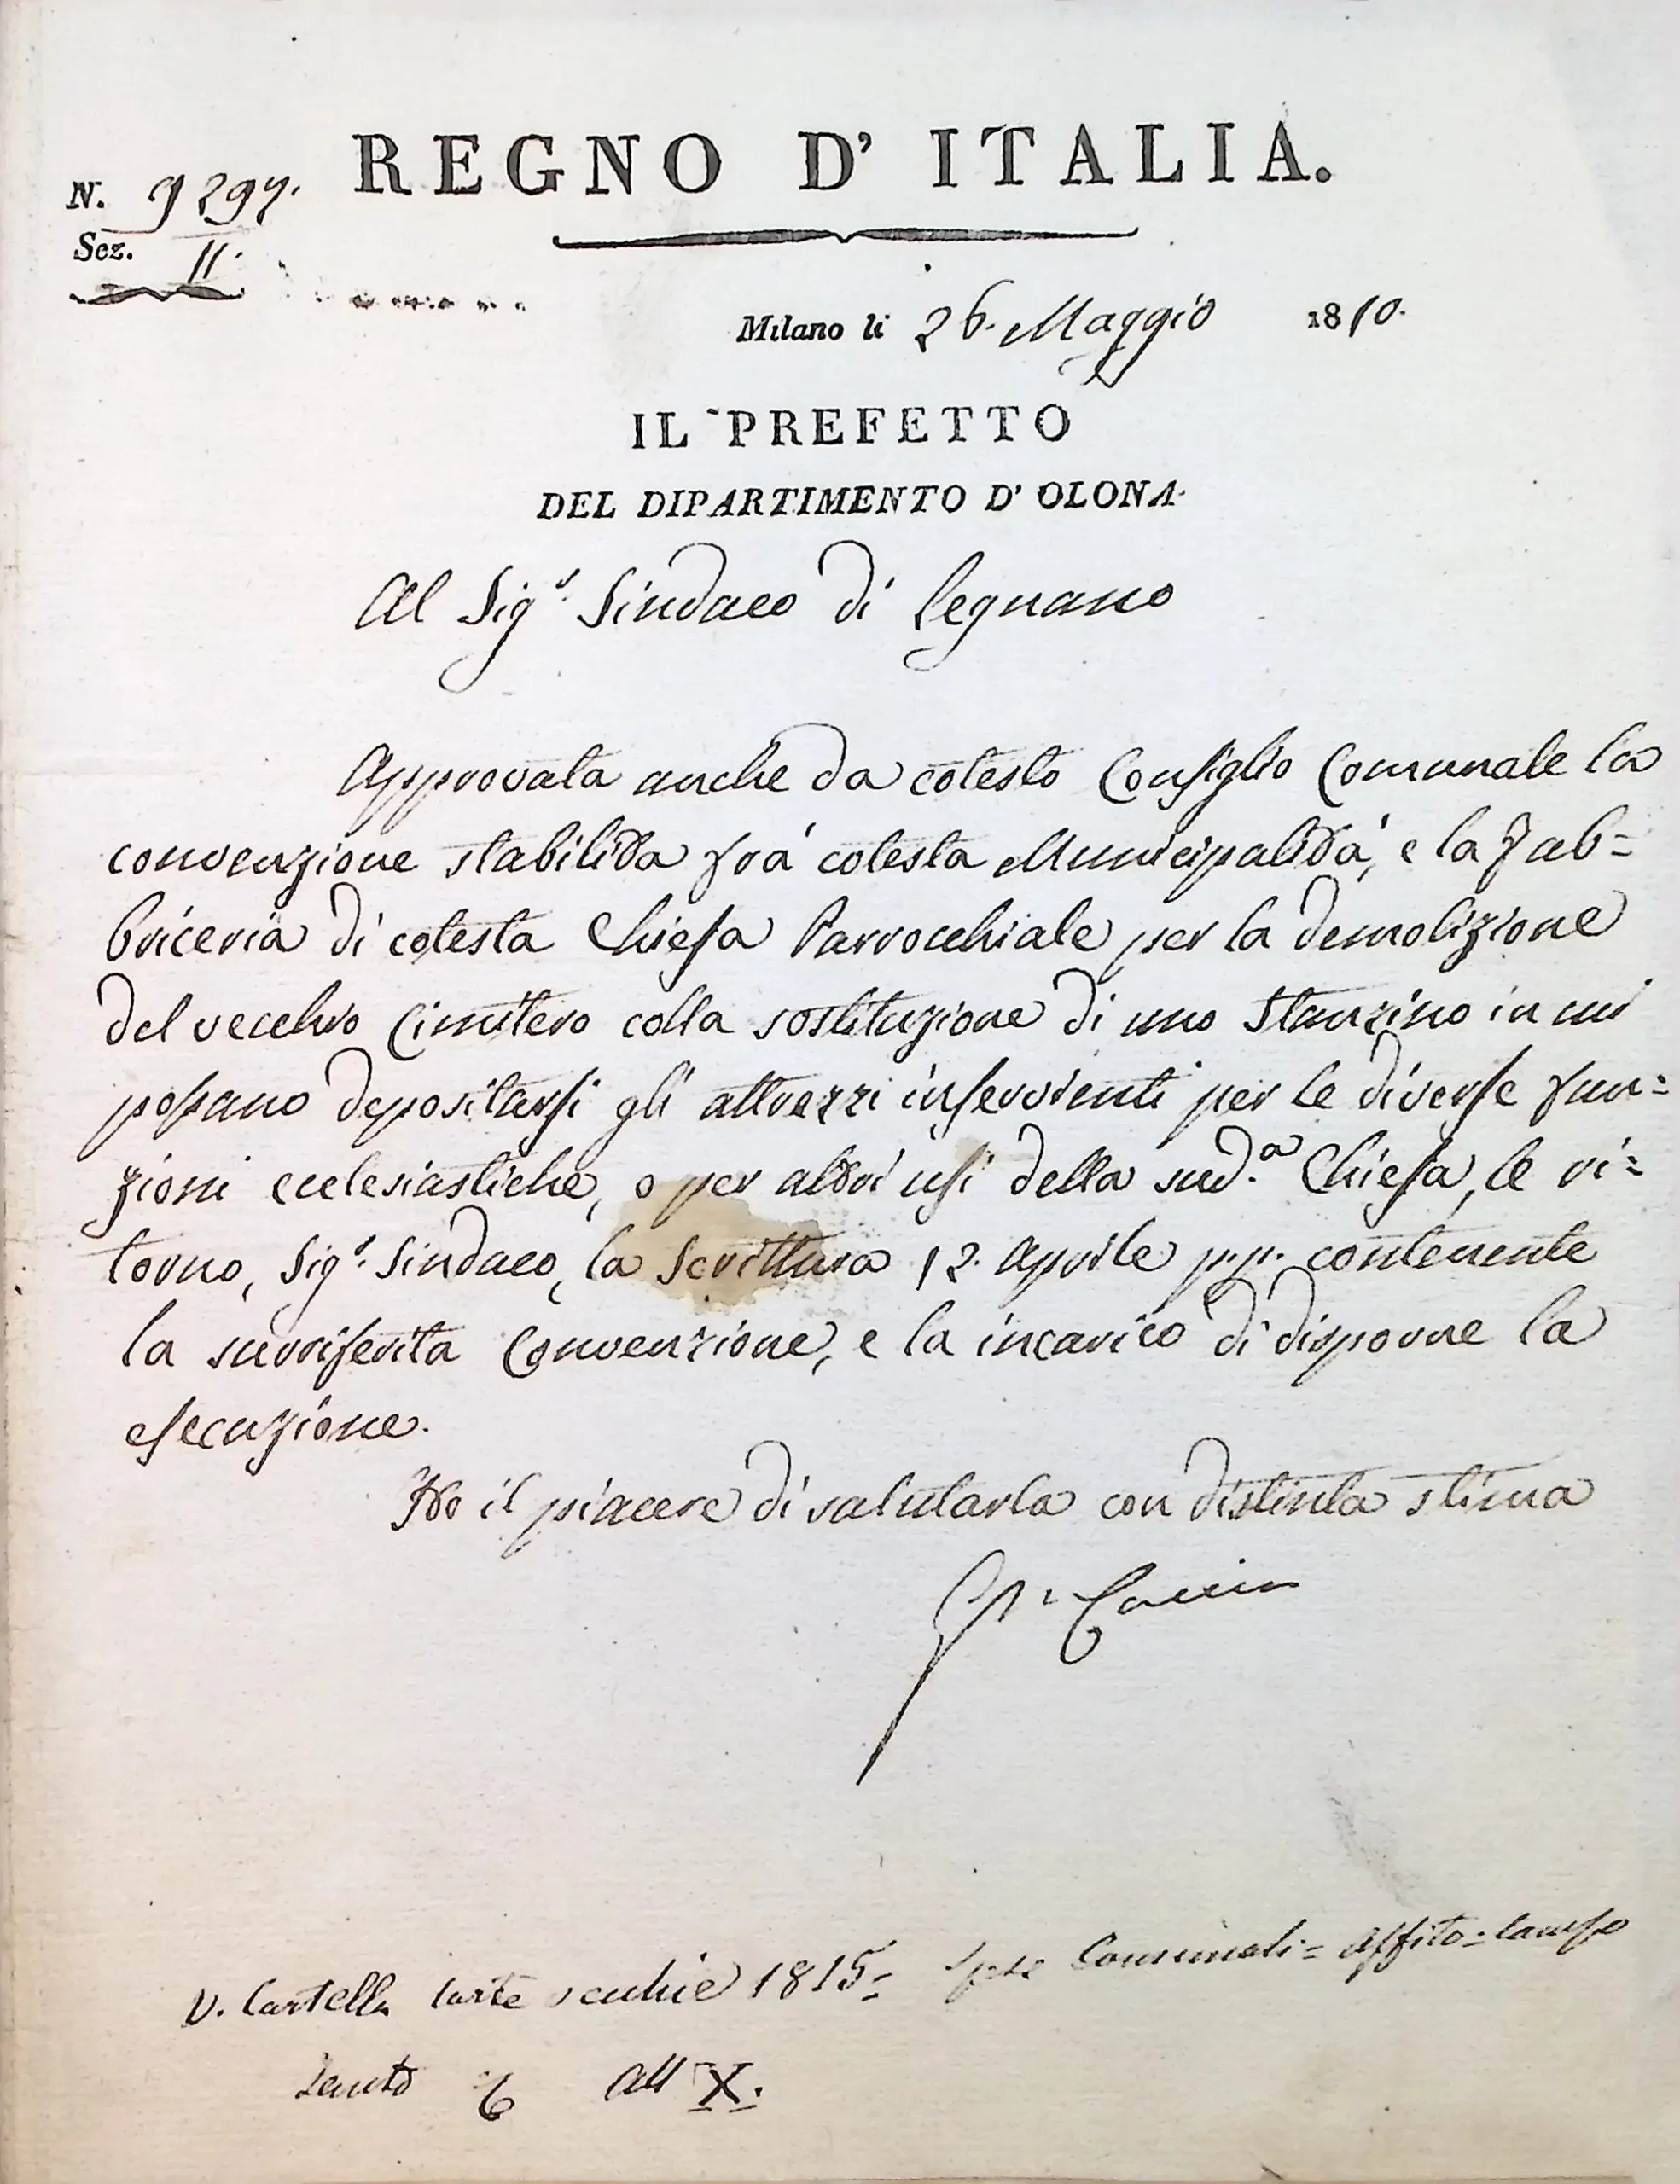 REGNO D' ITALIA.
N. 9297.
Sez. II.
Milano li 26. Maggio 1810.
IL PREFETTO
DEL DIPARTIMENTO D' OLONA
Al Sig.r Sindaco di Legnano
Approvata anche da cotesto Consiglio Comunale la
convenzione stabilita frà cotesta Municipalità, e la Fab=
briceria di cotesta Chiesa Parrocchiale per la demolizione
del vecchio Cimitero colla sostituzione di uno Stanzino in cui
possano depositarsi gli attrezzi inservienti per le diverse fun=
zioni ecclesiastiche, o per altri usi della sud.a Chiesa, le ri=
torno, Sig.r Sindaco, la Scrittura 12. Aprile p.p. contenente
la surriferita Convenzione, e la incarico di disporne la
esecuzione.
Ho il piacere di salutarla con distinta stima
V. Cartella Carte vecchie 1815= Spese Comunali= Affito=
All X.